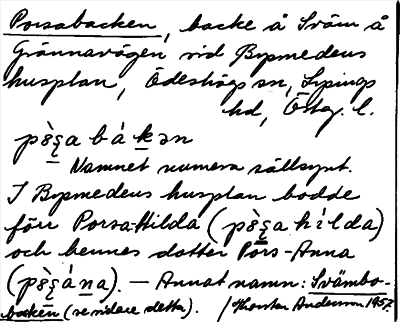 Porsabacken, backe å Sväm å
Grännavägen vid Bysmedens
husplan, Ödeshögs sn, Lysings
hd, Östg. l.
pɵ̀ʂa bákən
Namnet numera sällsynt.
I Bysmedens husplan bodde
förr Porsa-Hilda (pɵ̀ʂa hílda)
och hennes dotter Pors-Anna
(pɵ̀ʂána). — Annat namn: Svämbo-
backen (se vidare detta). /Thorsten Andersson 1957.